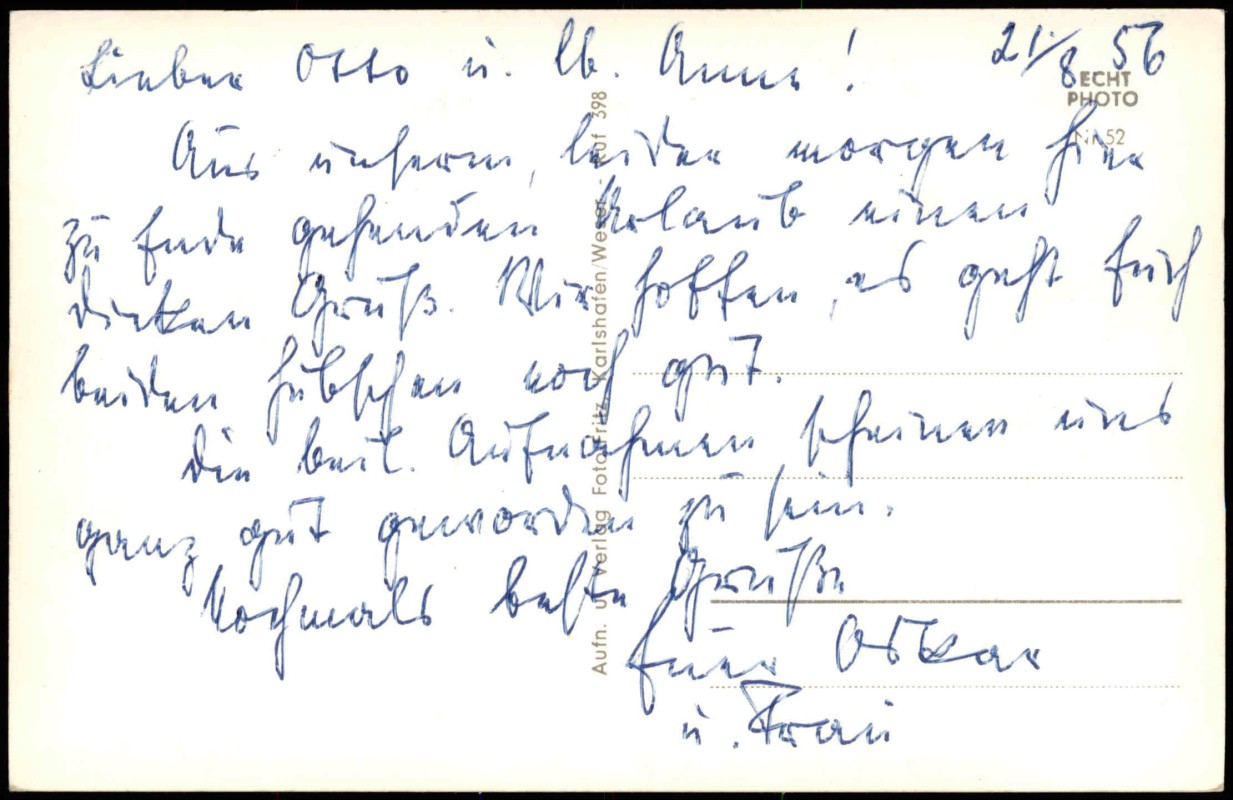 21/8 56
Lieber Otto u. lb. Anne!
ECHT
PHOTO
Nr. 52
Aus unserm, leider morgen hier
zu Ende gehenden Urlaub einen
dicken Gruß. Wir hoffen, es geht Euch
beiden Hübschen noch gut.
Die beil. Aufnahmen scheinen uns
ganz gut geworden zu sein.
Nochmals beste Grüße
Euer Oskar
u. Frau
Aufn. u. Verlag Foto Fritz, Karlshafen/Weser 398